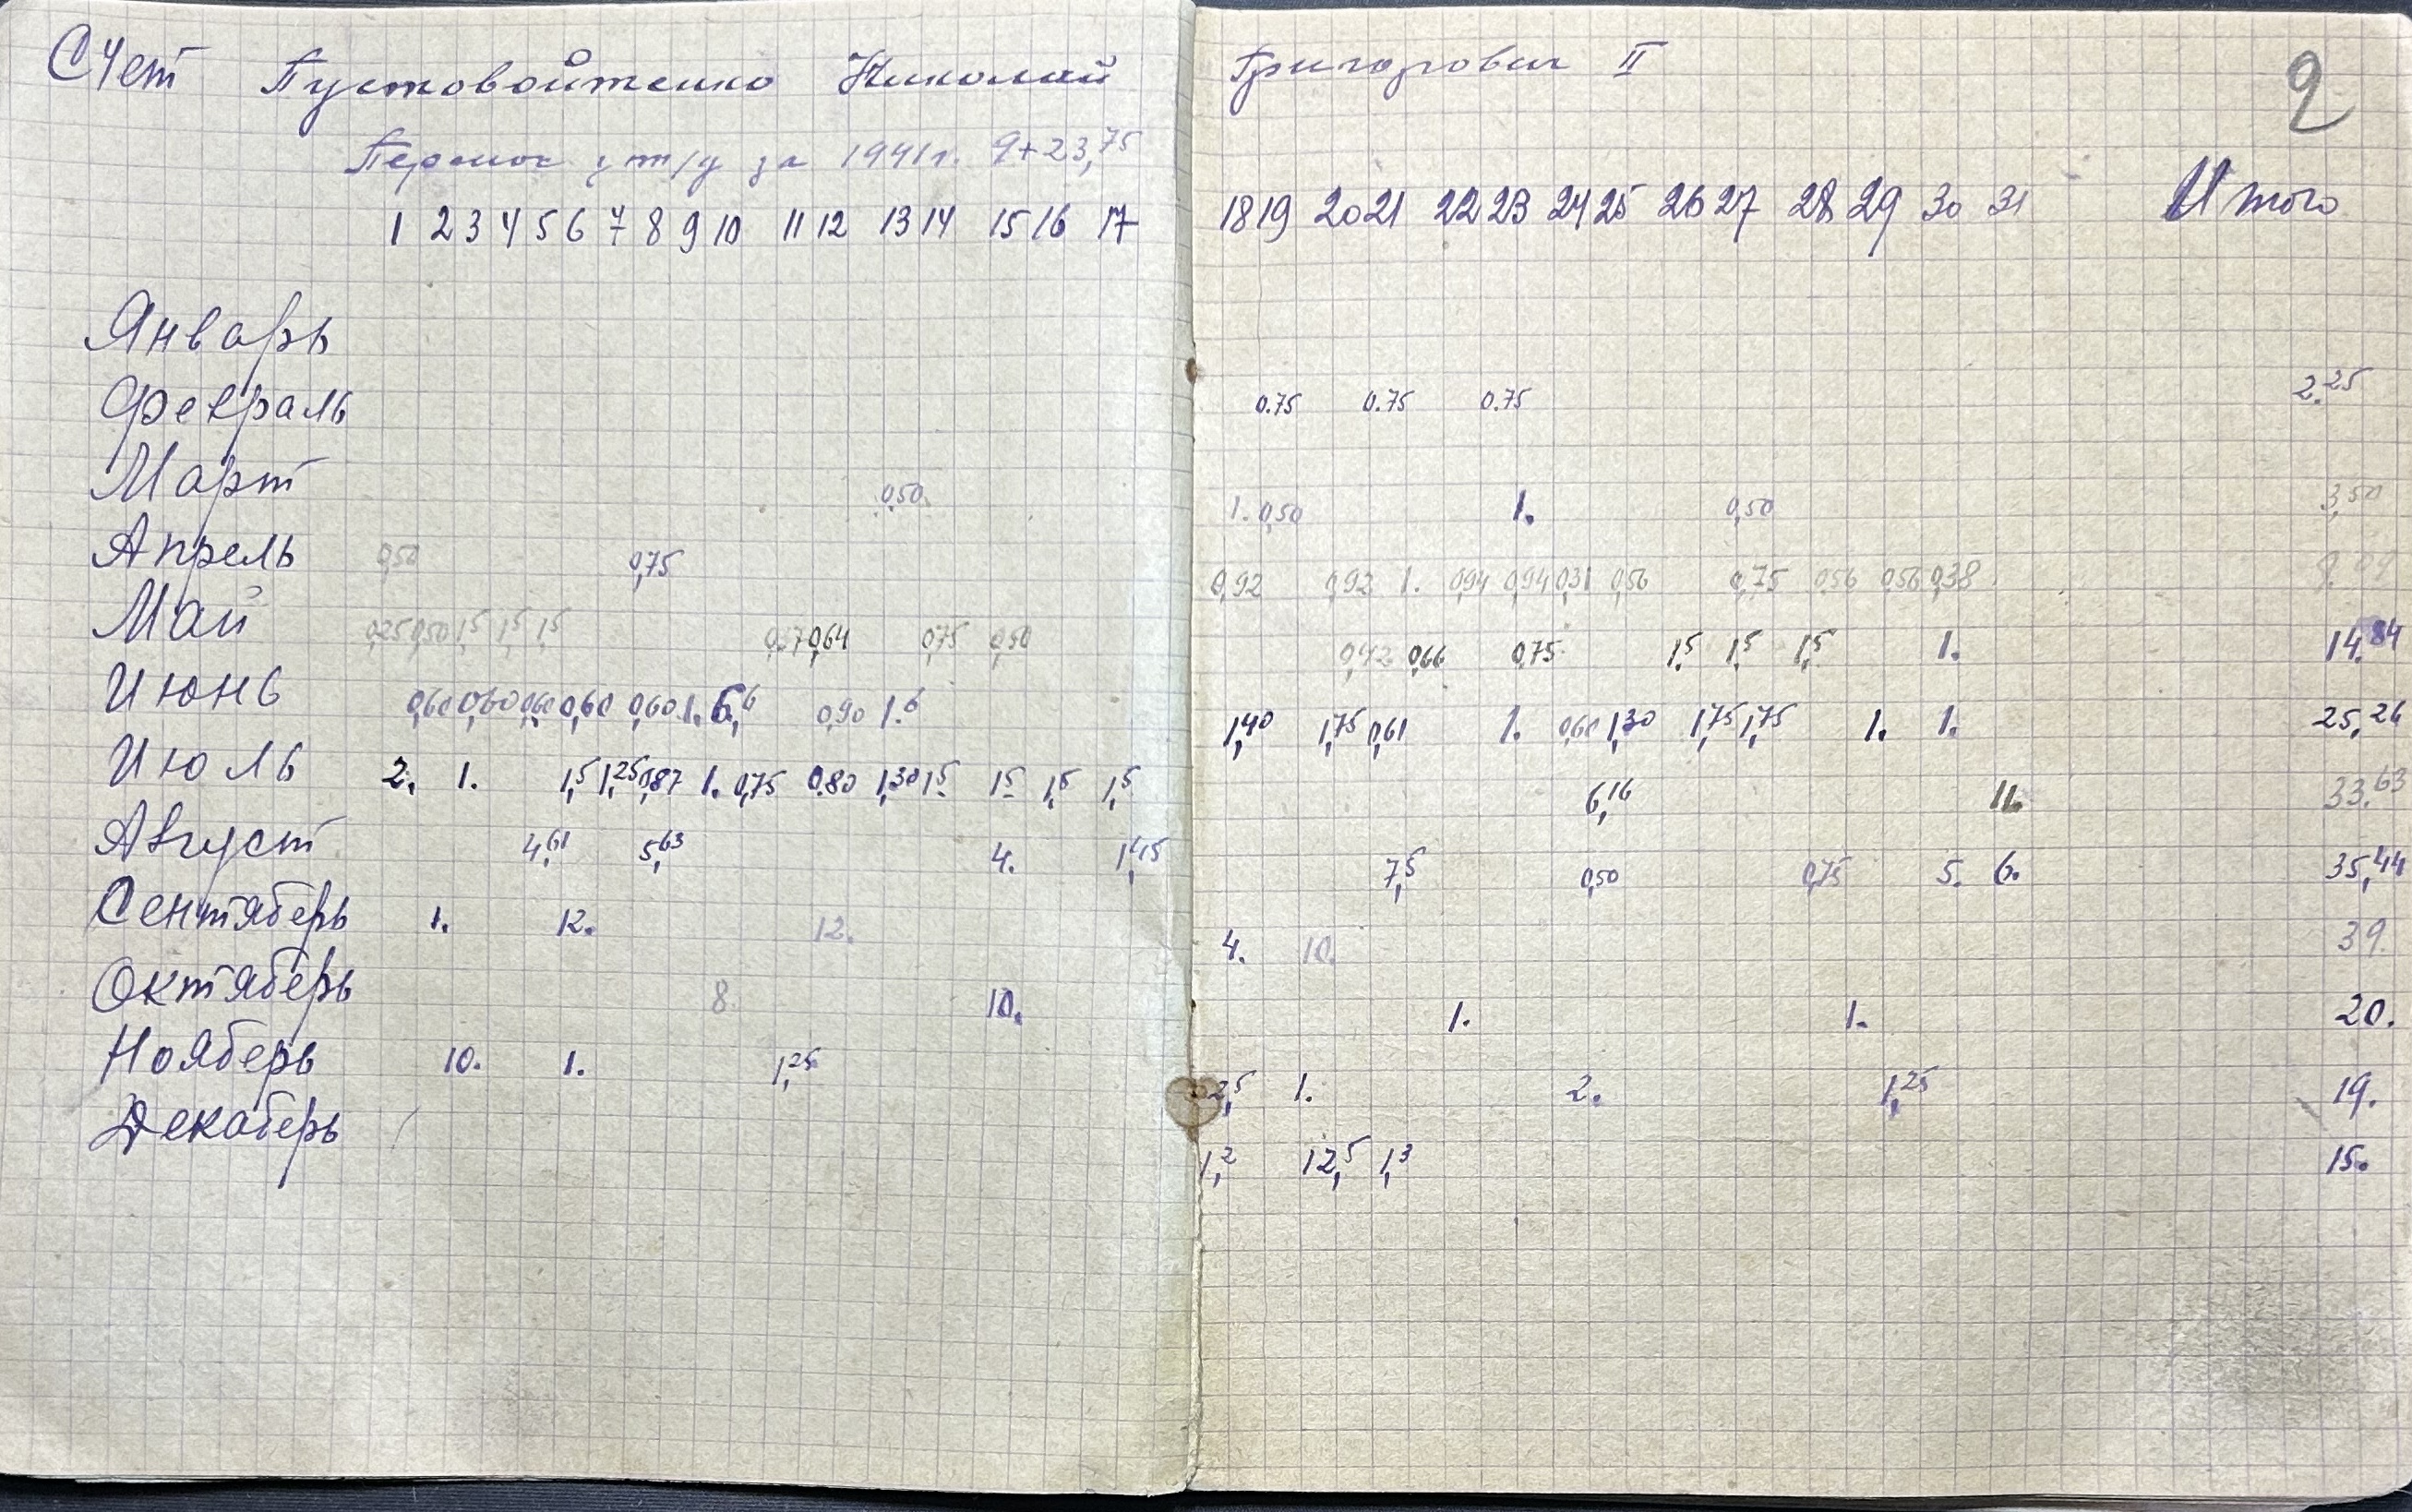 Счет Пустовойтенко Николай Григорович II 9
т/д за 1941 г. 9+23,75
1 2 3 4 5 6 7 8 9 10 11 12 13 14 15 16 17 18 19 20 21 22 23 24 25 26 27 28 29 30 31 Итого
Январь
Февраль 0.75 0.75 0.75 2.25
Март 0,50 1. 0,50 1. 0,50 3,50
Апрель 0,50 0,75 0,92 0,92 1. 0,94 0,94 0,31 0,56 0,75 0,56 0,56 0,38
Май 0,25 0,50 1,5 1,5 1,5 0,37 0,64 0,75 0,50 0,42 0,66 0,75 1,5 1,5 1,5 1. 14.84
Июнь 0,60 0,60 0,60 0,60 0,60 1. 6,6 0,90 1.6 1,40 1,75 0,61 1. 0,60 1,30 1,75 1,75 1. 1. 25,26
Июль 2. 1. 1,5 1,25 0,87 1. 0,75 0.80 1,30 1.5 1.5 1,5 1,5 6,16 11. 33.63
Август 4,61 5,63 4. 1,45 7,5 0,50 0,75 5. 6. 35,44
Сентяберь 1. 12. 12. 4. 10. 39.
Октяберь 8. 10. 1. 1. 20.
Нояберь 10. 1. 1,25 2,5 1. 2. 1,25 19.
Декаберь 1,2 12,5 1,3 15.